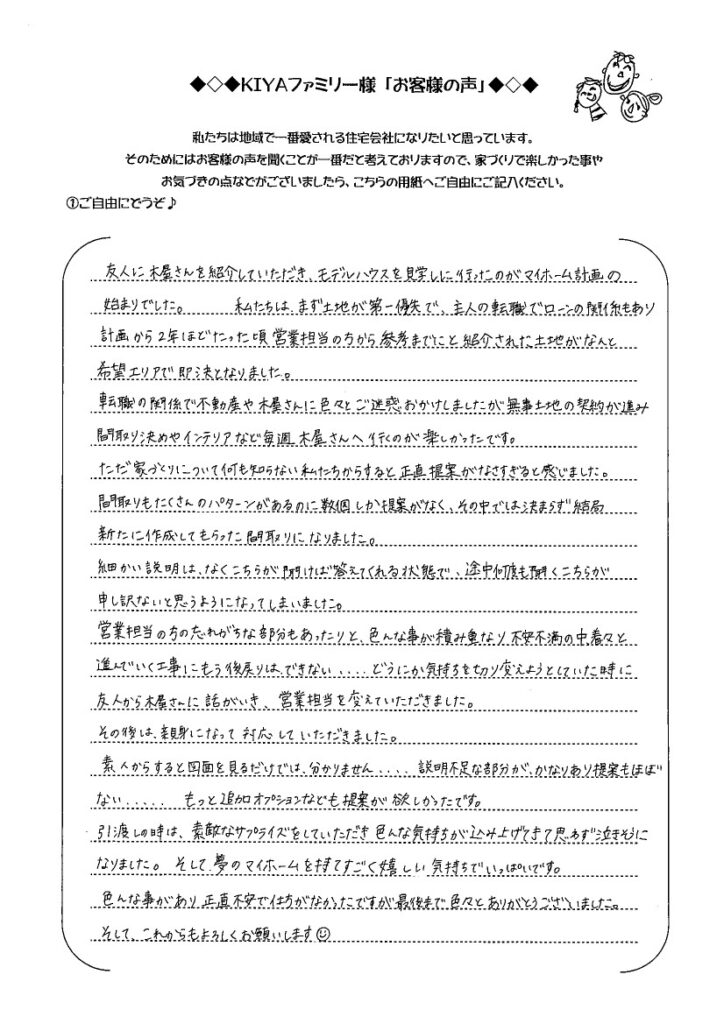 ◆◇◆KIYAファミリー様「お客様の声」◆◇◆
私たちは地域で一番愛される住宅会社になりたいと思っています。
そのためにはお客様の声を聞くことが一番だと考えておりますので、家づくりで楽しかった事や
お気づきの点などがございましたら、こちらの用紙へご自由にご記入ください。
①ご自由にどうぞ♪
友人に木屋さんを紹介していただき、モデルハウスを見学しに行ったのがマイホーム計画の
始まりでした。 私たちは、まず土地が第一優先で、主人の転職でローンの関係もあり
計画から2年ほどたった頃 営業担当の方から参考までにと紹介された土地がなんと
希望エリアで即決となりました。
転職の関係で不動産や木屋さんに色々とご迷惑おかけしましたが無事土地の契約が進み
間取り決めやインテリアなど毎週木屋さんへ行くのが楽しかったです。
ただ家づくりについて何も知らない私たちからすると正直提案がなさすぎると感じました。
間取りもたくさんのパターンがあるのに数個しか提案がなく、その中では決まらず結局
新たに作成してもらった間取りになりました。
細かい説明は、なくこちらが聞けば答えてくれる状態で、途中何度も聞くこちらが
申し訳ないと思うようになってしまいました。
営業担当の方の忘れがちな部分もあったりと、色んな事が積み重なり不安不満の中着々と
進んでいく工事にもう後戻りは、できない....どうにか気持ちを切り変えようとしていた時に
友人から木屋さんに話がいき、営業担当を変えていただきました。
その後は、親身になって対応していただきました。
素人からすると図面を見るだけでは、分かりません.....説明不足な部分が、かなりあり提案もほぼ
ない..... もっと追加オプションなども提案が欲しかったです。
引渡しの時は、素敵なサプライズをしていただき色んな気持ちが込み上げてきて思わず泣きそうに
なりました。そして夢のマイホームを持てすごく嬉しい気持ちでいっぱいです。
色んな事があり正直不安で仕方がなかったですが最後まで色々とありがとうございました。
そして、これからもよろしくお願いします☺